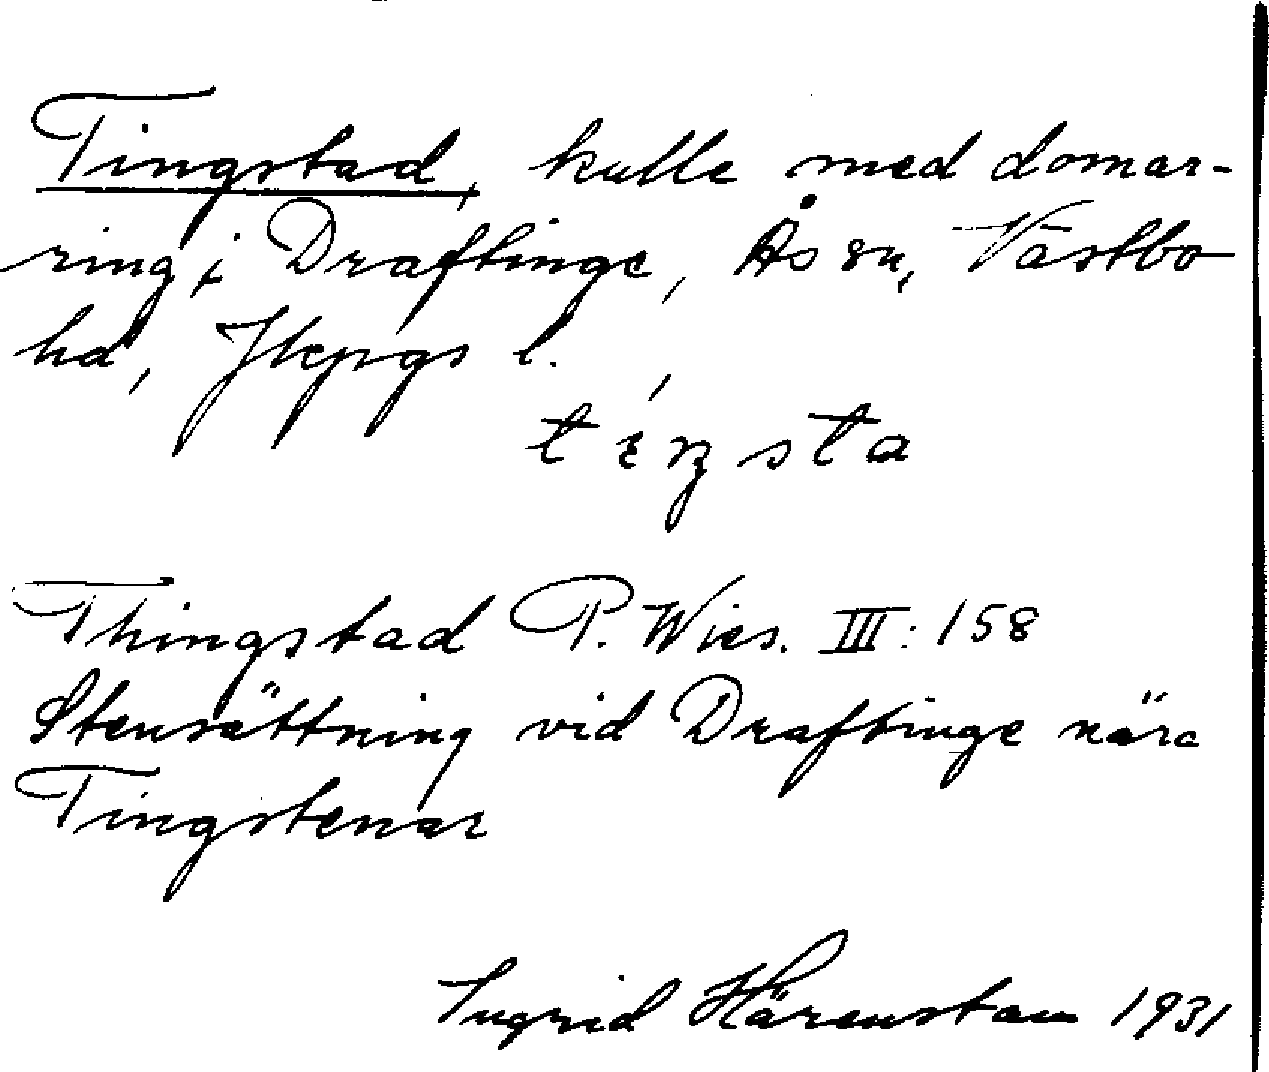 Tingstad, kulle med domar-
ring i Draftinge, Ås sn, Västbo
hd, Jkpgs l.
tiŋsta
Thingstad P. Wies. III: 158
Stensättning vid Draftinge nära
Tingstenar
Ingrid Härenstam 1931